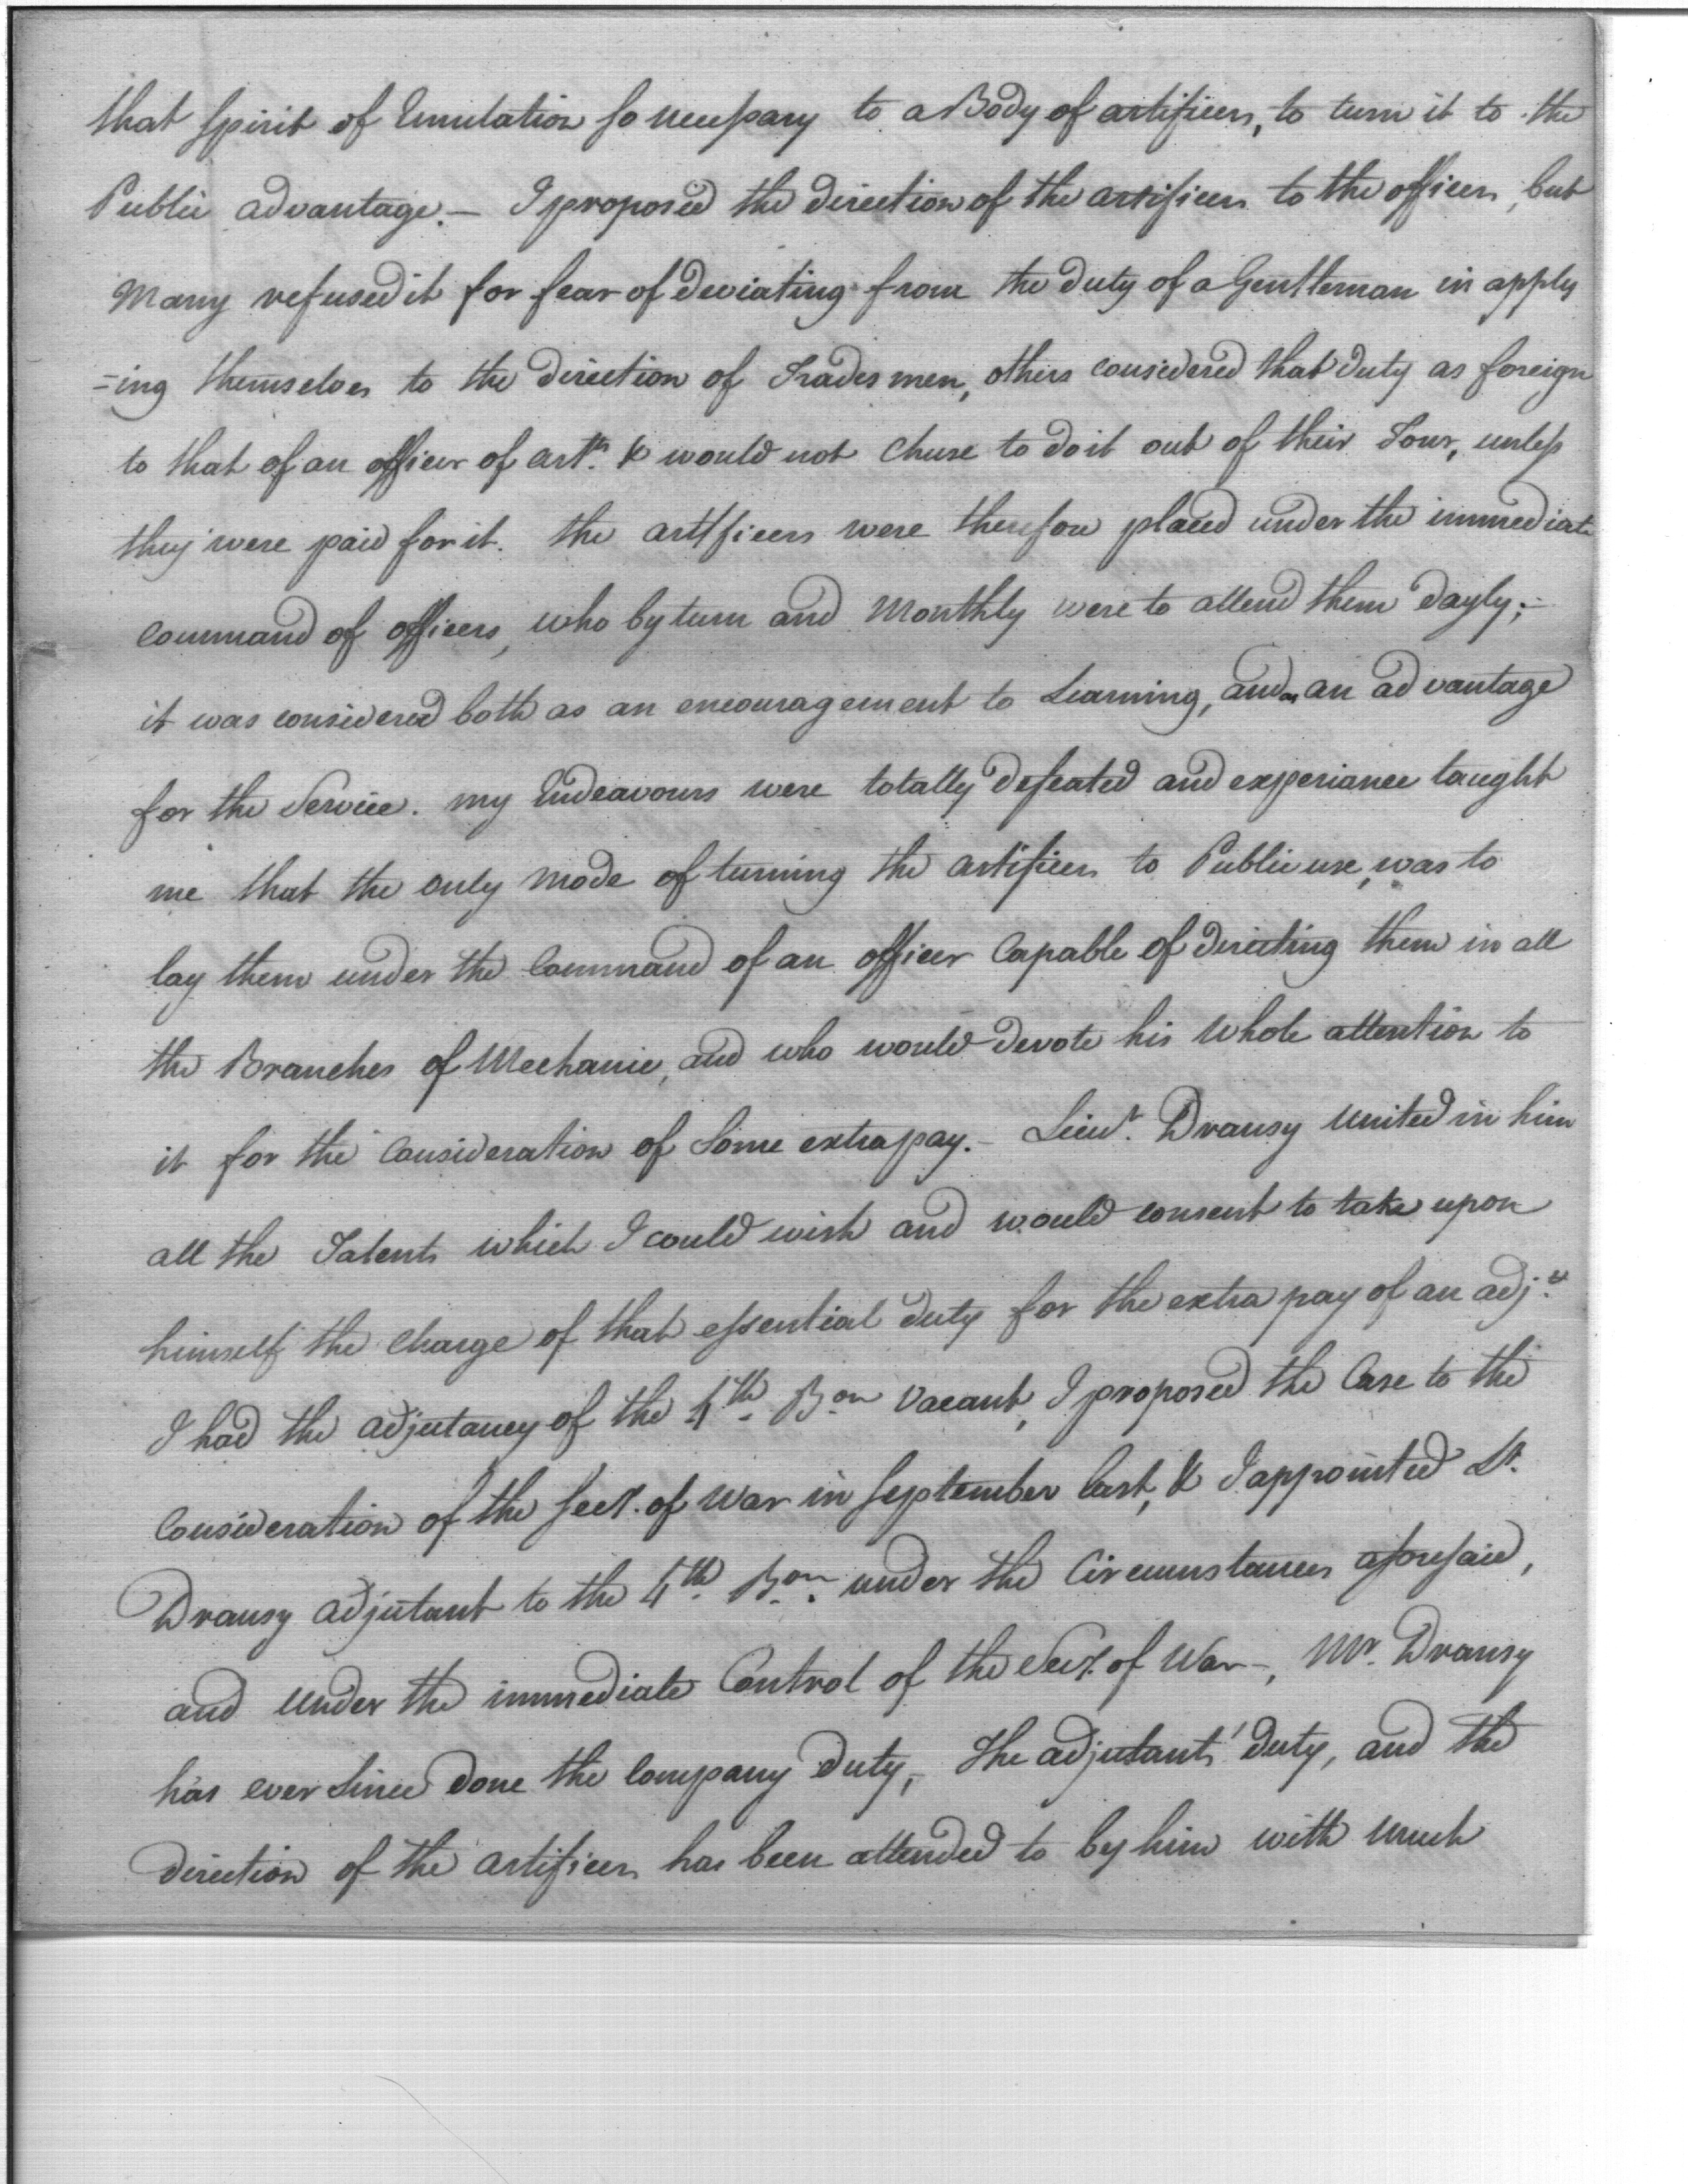 that spirit of Emulation so necessary to a Body of artificers, to turn it to the
Public advantage. – I proposed the direction of the artificers to the officers, but
Many refused it for fear of deviating from the duty of a Gentleman in apply
=ing themselves to the direction of Trades men, others considered that duty as foreign
to that of an officer of art.y & would not chuse to do it out of their Tour, unless
they were paid for it. the artificers were therefore placed under the immediate
command of officers, who by turn and Monthly were to attend them dayly; –
it was considered both as an encouragement to Learning, and as an advantage
for the Service. my Endeavours were totally defeated and experiance taught
me that the only mode of turning the artificers to Public use, was to
lay them under the Command of an officer Capable of directing them in all
the Branches of Mechanic, and who would devote his whole attention to
it for the Consideration of Some extra pay. – Lieut. Drausy United in him
all the Talents which I could wish and would consent to take upon
himself the charge of that essential duty for the extra pay of an adj.t
I had the adjutancy of the 4th Bon Vacant, I proposed the Case to the
Consideration of the Secy. of War in September last, & I appointed Lt.
Drausy adjutant to the 4th Bon. under the Circumstances aforesaid,
and under the immediate Control of the Secy. of War –, Mr. Drausy
has ever Since done the Company Duty, – The adjutants' Duty, and the
direction of the artificers has been attended to by him with much